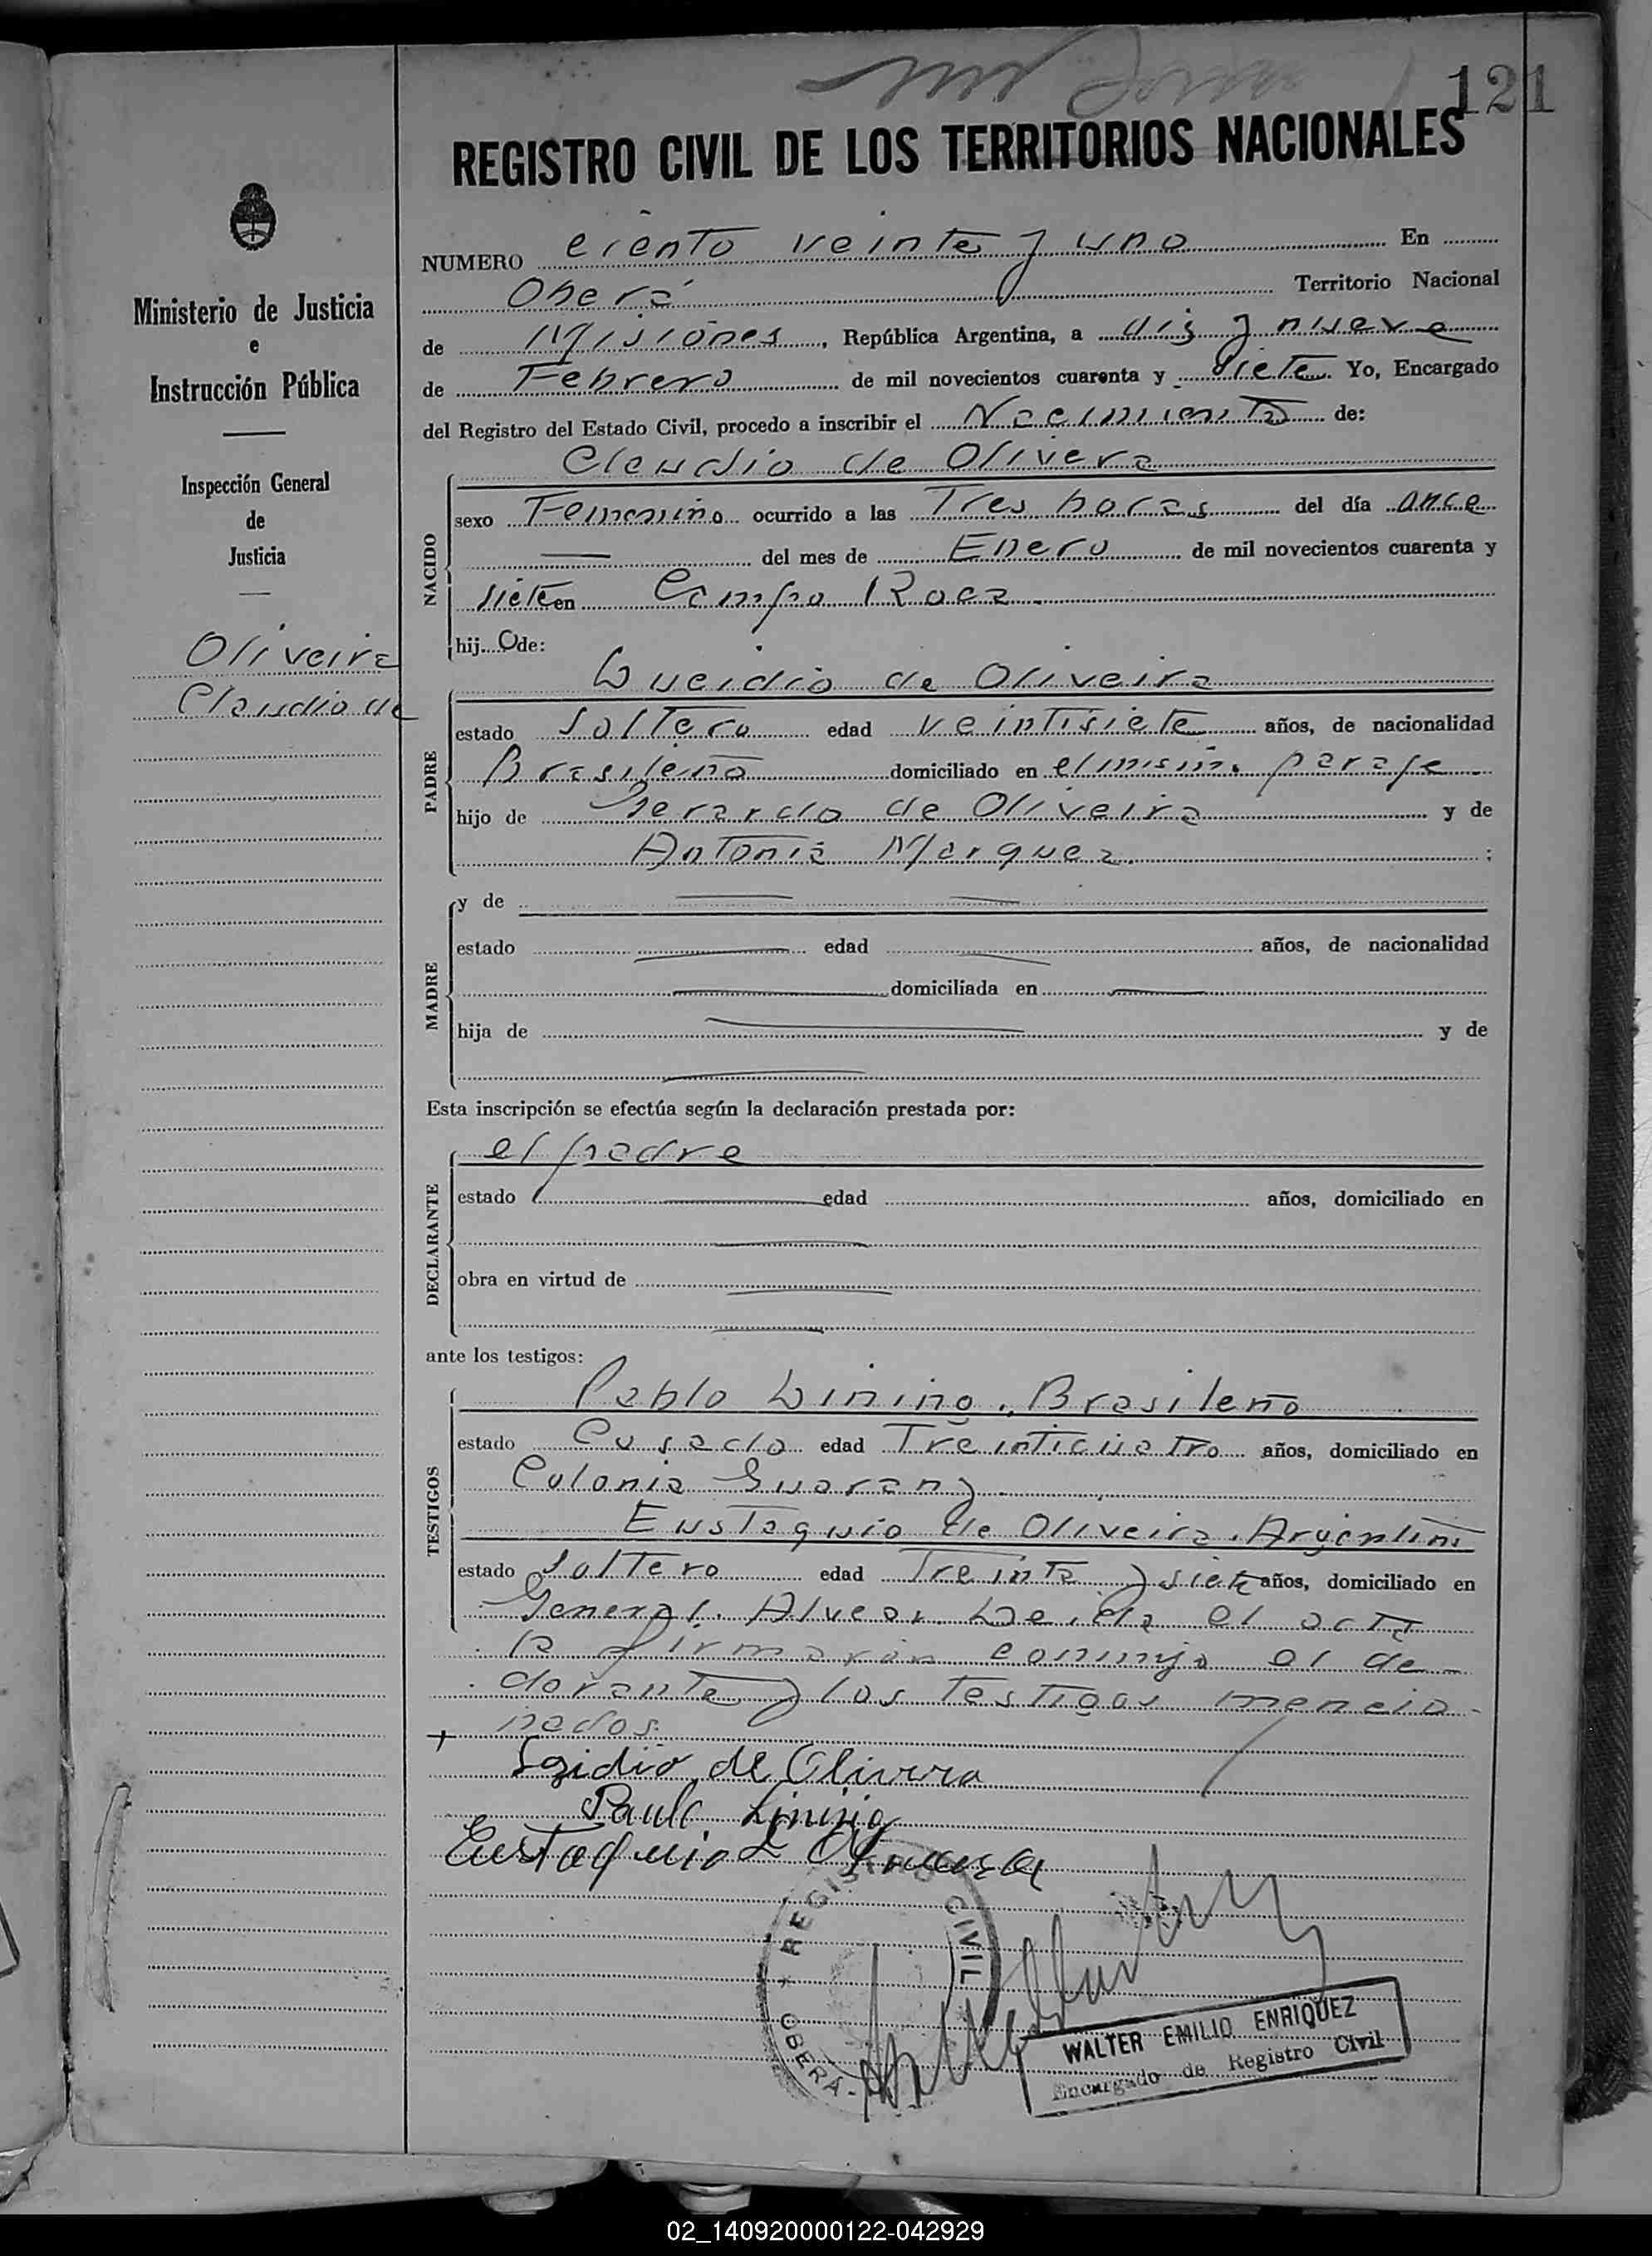 121
REGISTRO CIVIL DE LOS TERRITORIOS NACIONALES
Ministerio de Justicia
e
Instrucción Pública
Inspección General
de
Justicia
Oliveira
Claudio de
NUMERO ciento veinte y uno En
Oberá Territorio Nacional
de Misiones, República Argentina, a diz y nueve
de Febrero de mil novecientos cuarenta y siete Yo, Encargado
del Registro del Estado Civil, procedo a inscribir el Nacimiento de:
NACIDO
Claudio de Olivera
sexo Femenino ocurrido a las Tres horas del día once
del mes de Enero de mil novecientos cuarenta y
siete en Campo Roca
hij. O de:
PADRE
de Oliveira
estado Soltero edad veintisiete años, de nacionalidad
Brasileño domiciliado en el mismo paraje
hijo de Gerardo de Oliveira y de
Antonia Marquez. ;
MADRE
y de
estado edad años, de nacionalidad
domiciliada en
hija de y de
Esta inscripción se efectúa según la declaración prestada por:
DECLARANTE
el padre
estado edad años, domiciliado en
obra en virtud de
ante los testigos:
TESTIGOS
Pablo Lining. Brasileño
estado Casado edad Treinticuatro años, domiciliado en
Colonia Guarany
Eustaquio de Oliveira. Argentino
estado Soltero edad Treinta y siete años, domiciliado en
General Alvear. Leida el acta
la firmaron conmigo el de-
clarante y los testigos mencio-
nados.
Egidio de Olivera
Paulo Lining
Eustaquio
REGISTRO CIVIL
OBERA
WALTER EMILIO ENRIQUEZ
Encargado de Registro Civil
02_140920000122-042929